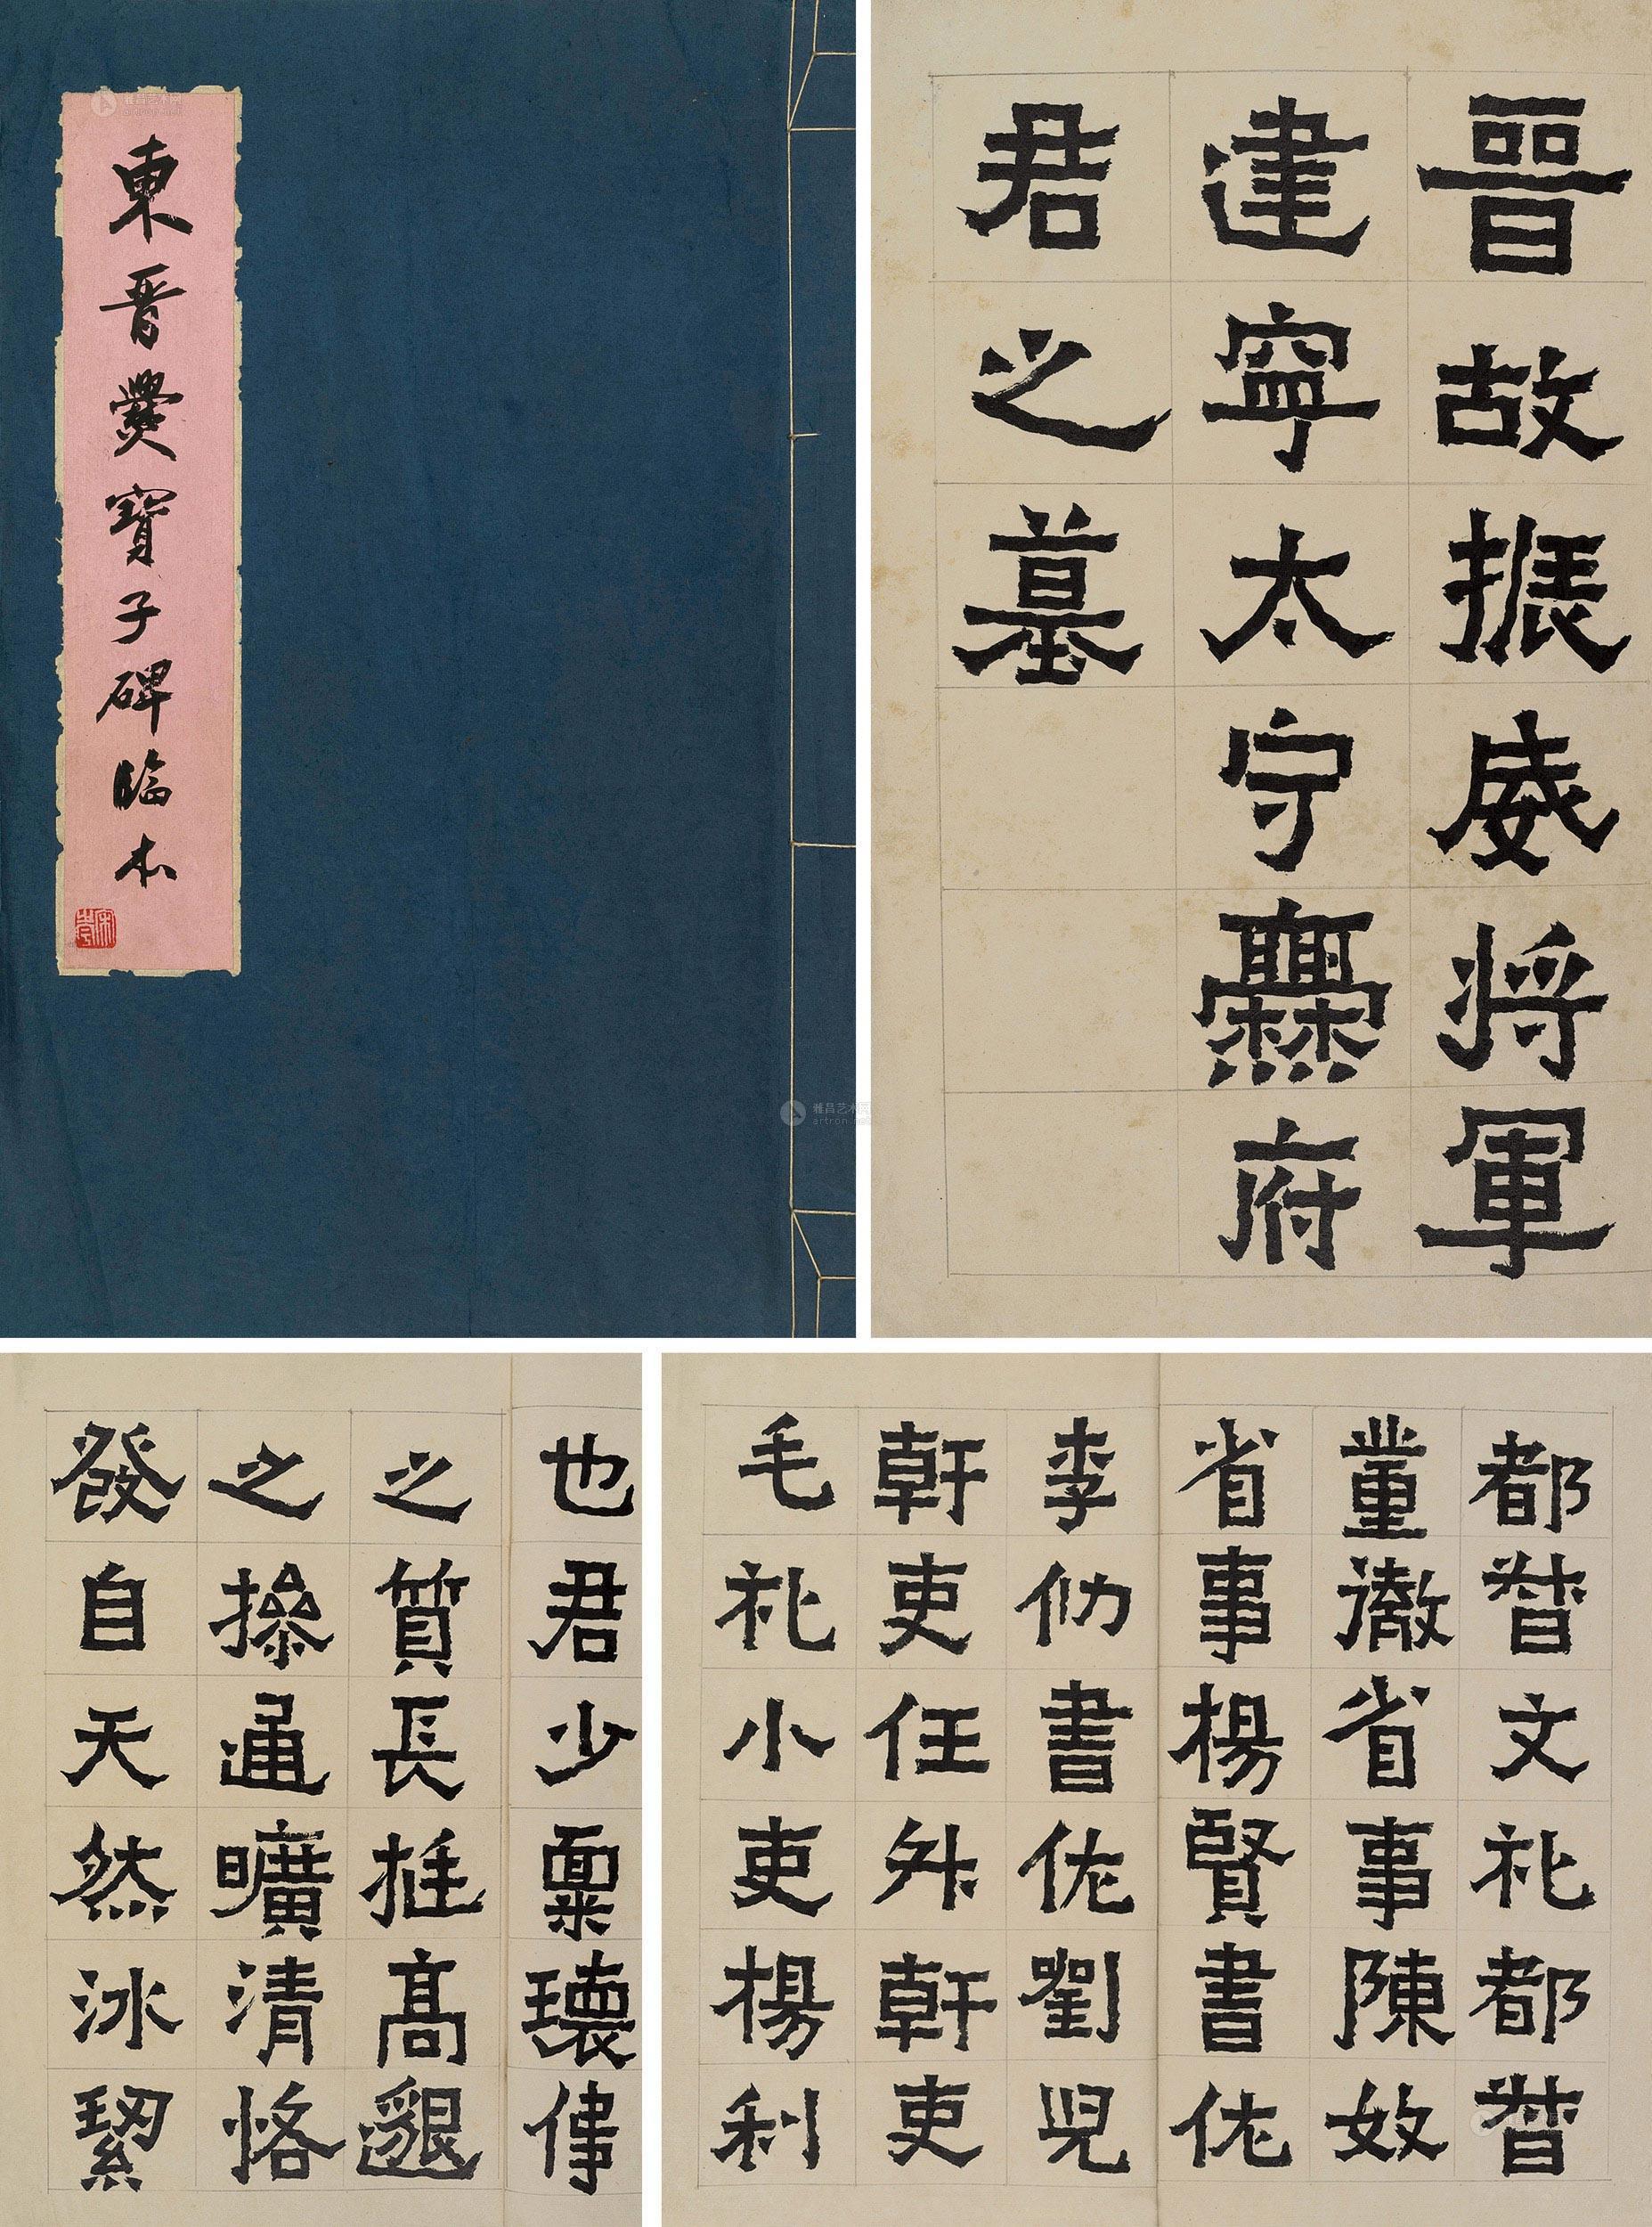 東晉爨寶子碑臨本
晉故振威將軍
建寧太守爨府
君之墓
也君少稟瓌偉
之質長挺高邈
之操通曠清恪
發自天然冰絜
都督文礼都督
董徹省事陳奴
省事楊賢書佐
李仂書佐劉兒
幹吏任升幹吏
毛礼小吏楊利
雅昌艺术网
artron.net